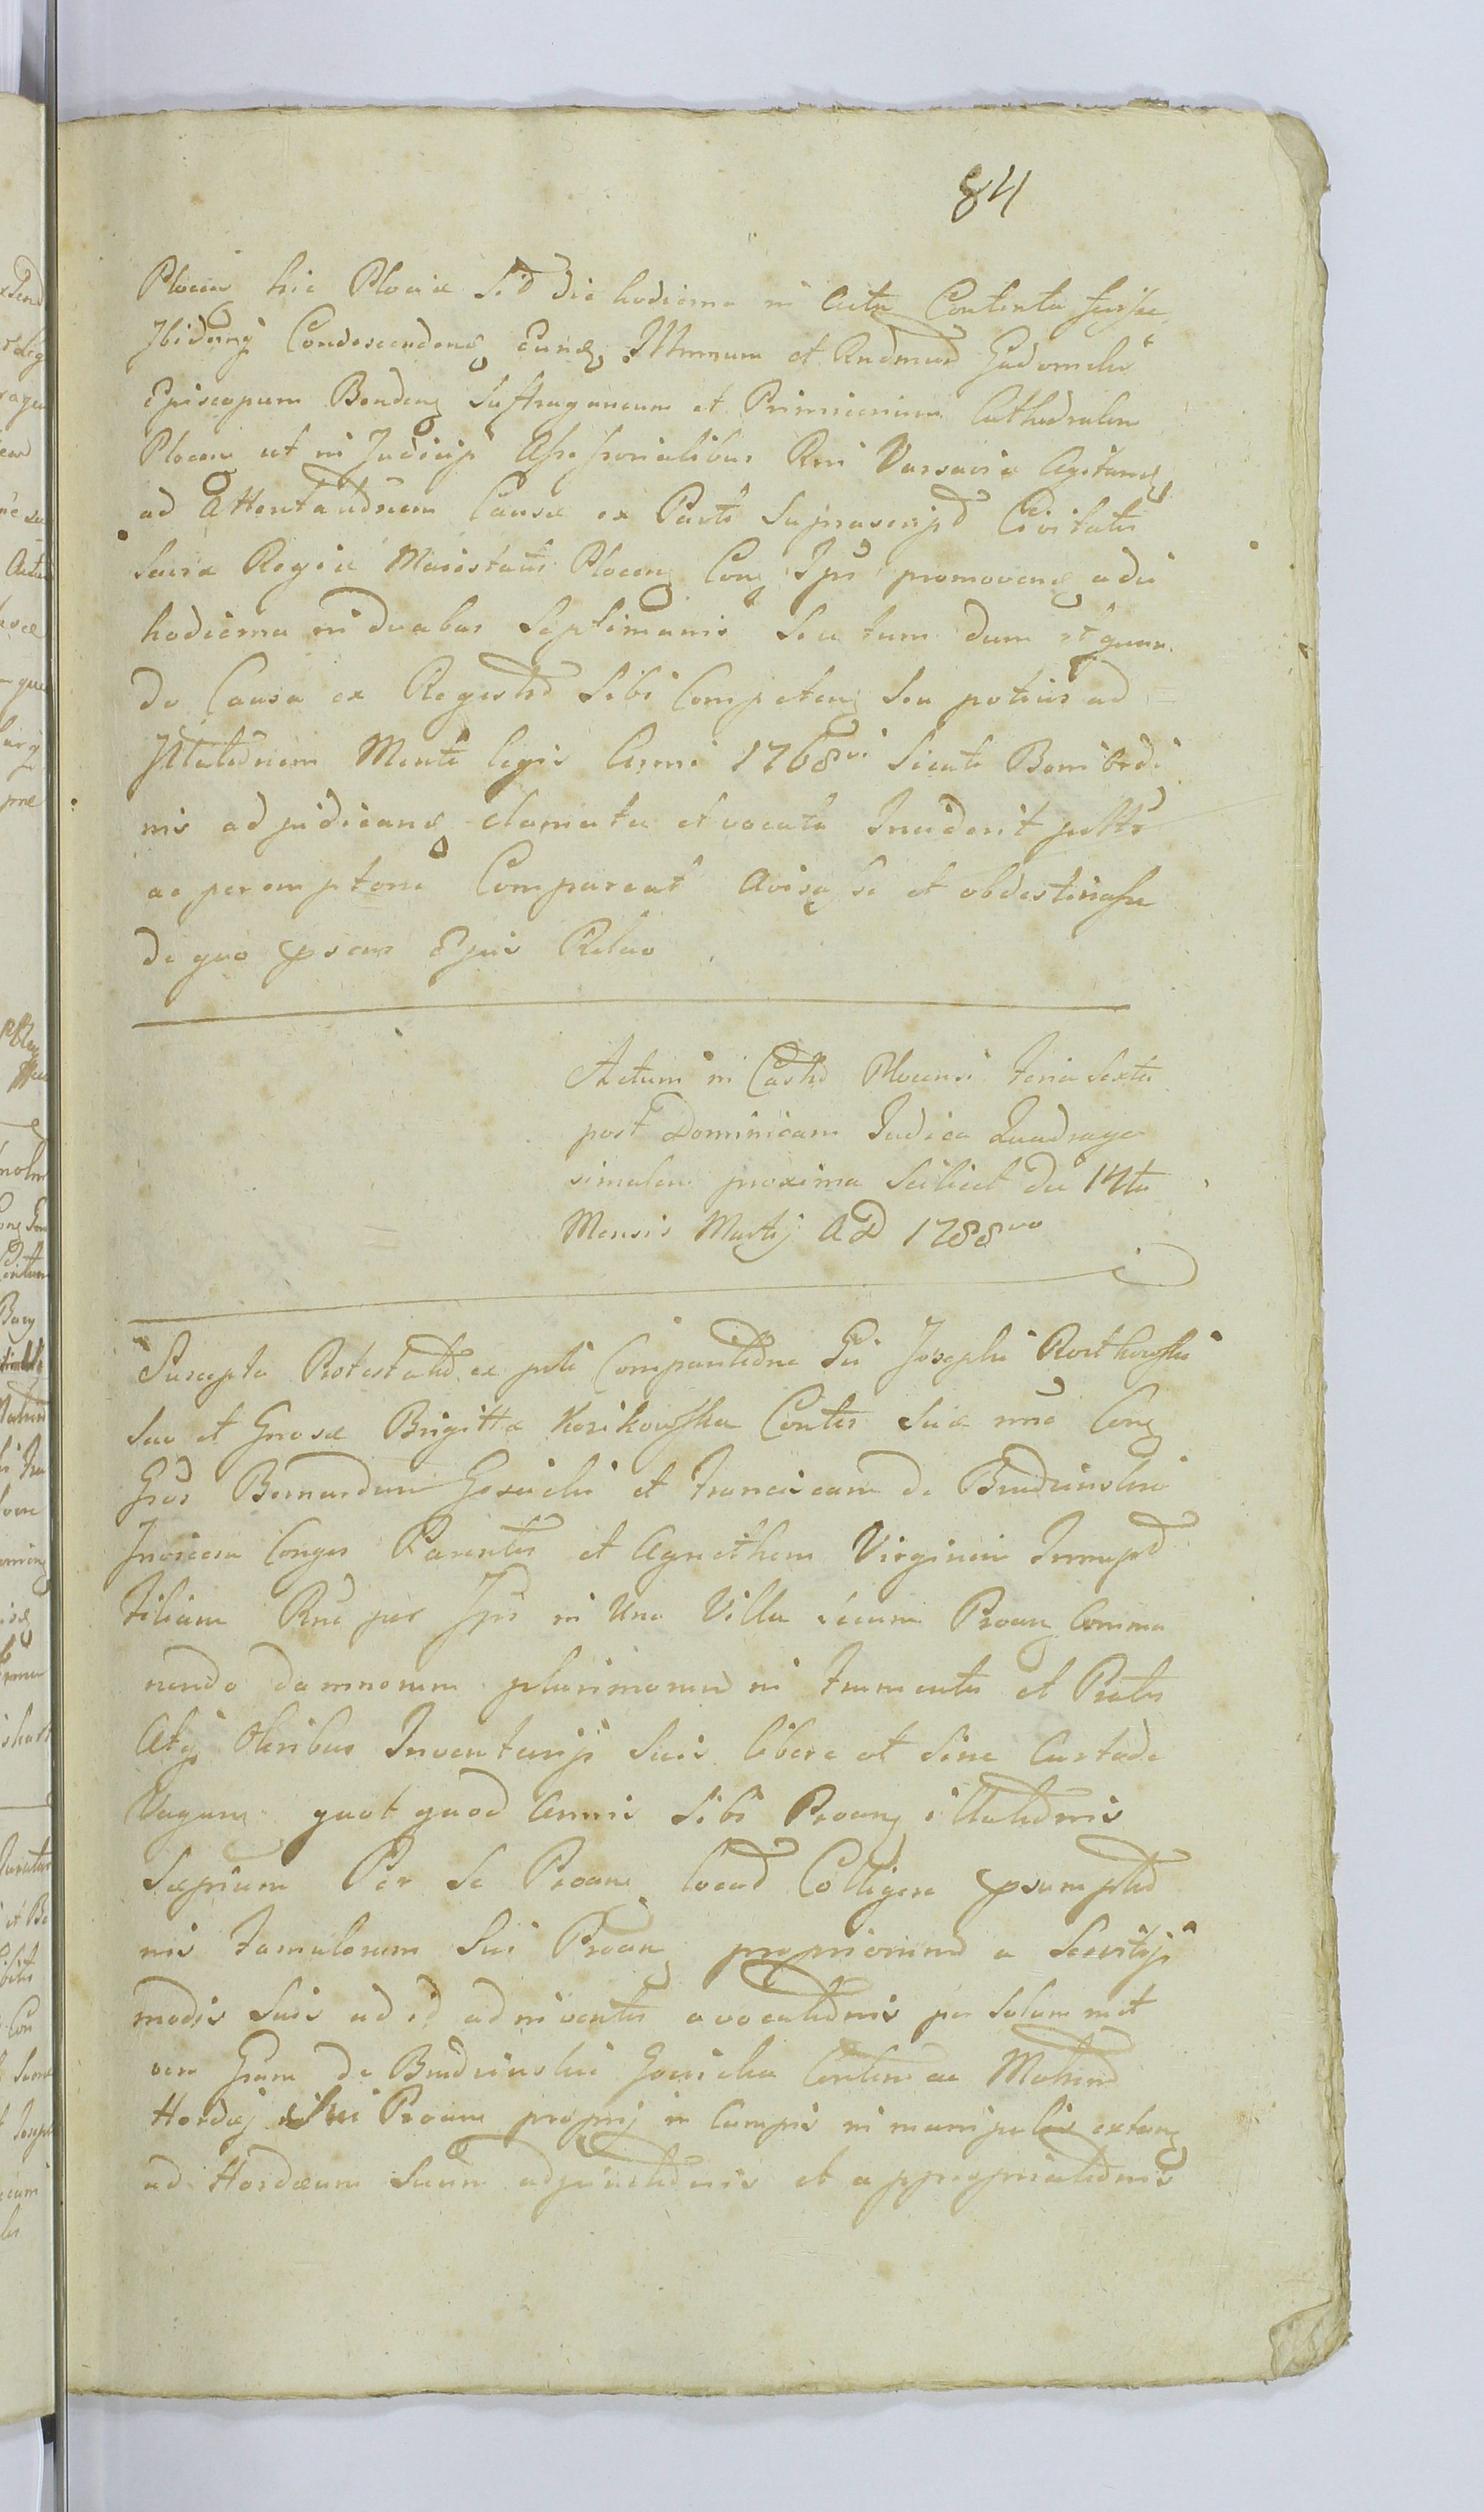 84
Plocen hic Plociæ Sed die hodierna in Acta Contenta fuisse
Ibidemq Condescendens eund Illrmum et Rndmum Gadomski
Episcopum Bendens Suffraganeum et Primicerium Cathedralem
Plocen ut in Judicijs Assessorialibus Rni Varsaviæ Agitand
ad Attentandnem Causæ ex Parte Suprascript Civitatis
Sacræ Regiæ Maiestatis Plocens Con Ips promovend a die
hodierna in duabus Septimanis Seu tum dum et quan
do Causa ex Regestro Sibi Competen Seu potius ad
Mente legis Anni 1768vi Sicuti Boni Ordi
nis adjudicand clamata et vocata Inciderit
ac peremptorie Compareat Avisasse et obdestinasse
de quo psens Ejus Relao
Actum in Castro Plocensi Feria Sexta
post Dominicam Judica Quadrage
simalem proxima Scilicet die 14ta
Mensis Martij AD 1788vo
Suscepta Protestatio ex Comparitione Gsi Josephi Rostkowski
suo et Gnosæ Brigittæ Kosikowska Contes Suæ nne Con
Gsos Bernardum Gosicki et Franciscam de Brudzinskie
Invicem Conges Parentes et Agnethem Virginem Innupt
Filiam Rne per Ips in Una Villa Secum Proan Comma
nendo damnorum plurimorum in Frumentis et Pratis
Atq Oleribus Inventarijs Suis libere et Sine Custode
Vagan quot quod Annis Sibi Proan illationis
Sæpium Per Se Proan locat Colligere
nis Famulorum Sui Proan propriorum a Servitijs
modis Suis ad id adinventis avocationis per Solam met
vero Gsam de Brudzinskie Gosicka Contem ac Matrem
Hordej Sui Proan proprij in Campis in manipulis extan
ad Hordeum Suum adjunctionis et appropriationis